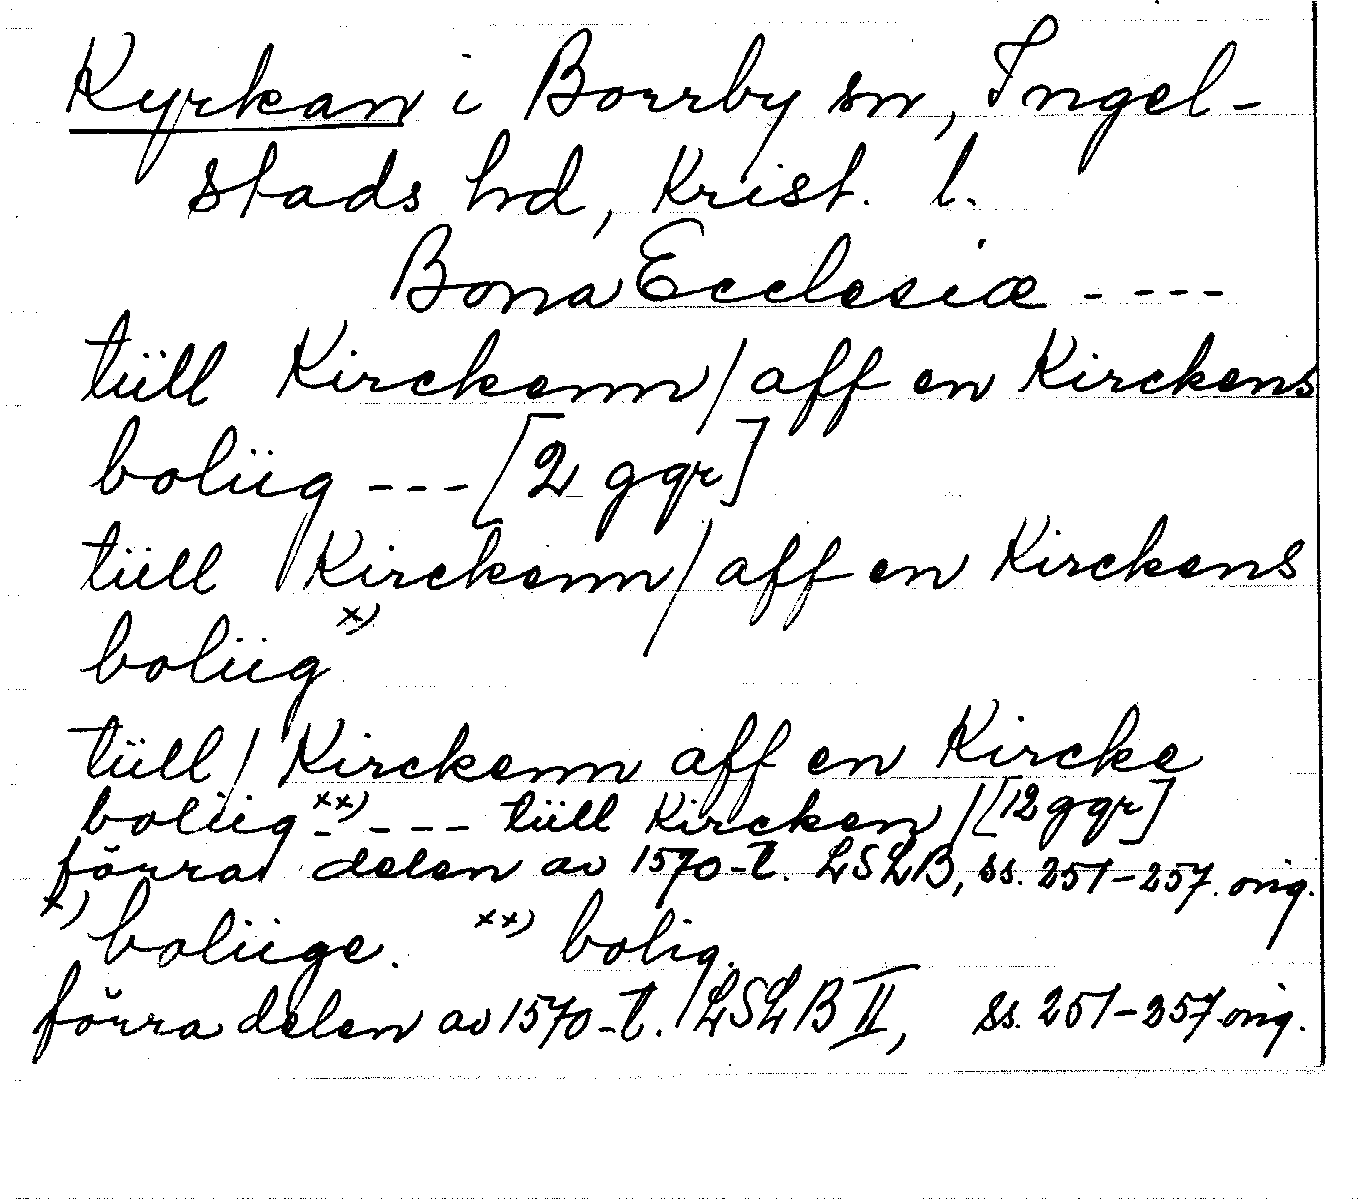 Kyrkan i Borrby sn, Ingel-
stads hd, Krist. l.
Bona Ecclesiæ ----
tüll Kirckenn/ aff en Kirckens
boliig --- [2 ggr]
tüll Kirckenn/ aff en Kirckens
boliig x)
tüll/ Kirckenn aff en Kircke
boliig xx) ---- tüll Kircken/ [12 ggr]
förra delen av 1570-t. LSLB, ss. 251-257. orig.
x) boliige. xx) bolig.
förra delen av 1570-t. LSLB II, ss. 251-257 orig.